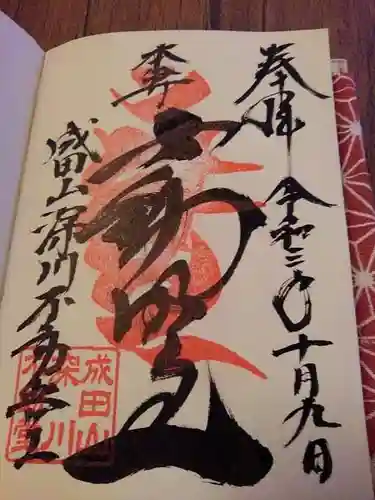 奉拝 令和三年十月九日
本尊
不動明王
成田山深川不動堂
成田山深川不動堂